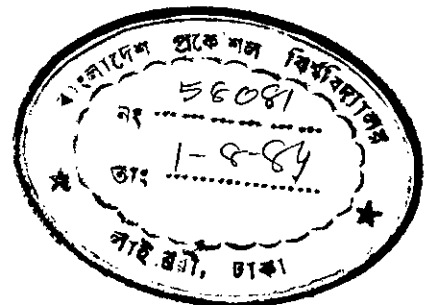 বাংলাদেশ প্রকৌশল বিশ্ববিদ্যালয়
নং 58081
তাং 1-8-84
লাইব্রেরী, ঢাকা